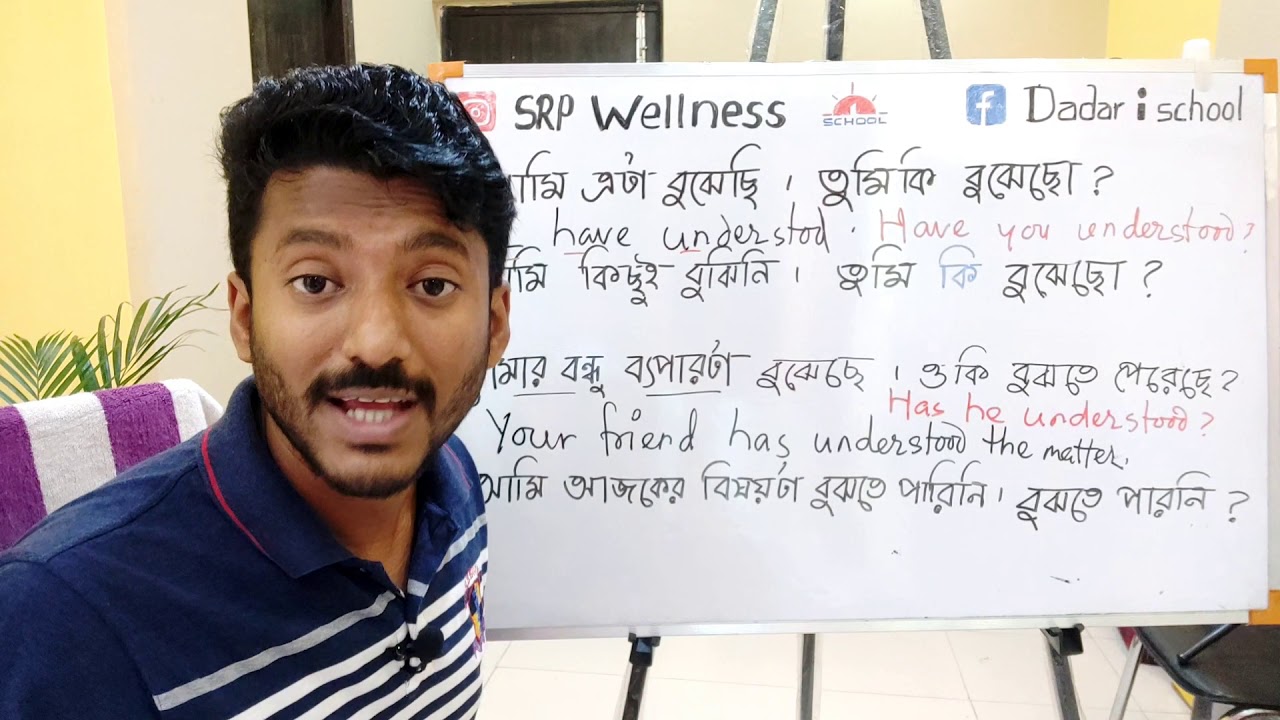 SRP Wellness SCHOOL Dadar i school
এটা বুঝেছি । তুমি কি বুঝেছো ?
have understood. Have you understood?
কিছুই বুঝিনি । তুমি কি বুঝেছো ?
বন্ধু ব্যপারটা বুঝেছে । ও কি বুঝতে পেরেছে ?
Has he understood?
Your friend has understood the matter.
আমি আজকের বিষয়টা বুঝতে পারিনি । বুঝতে পারনি ?